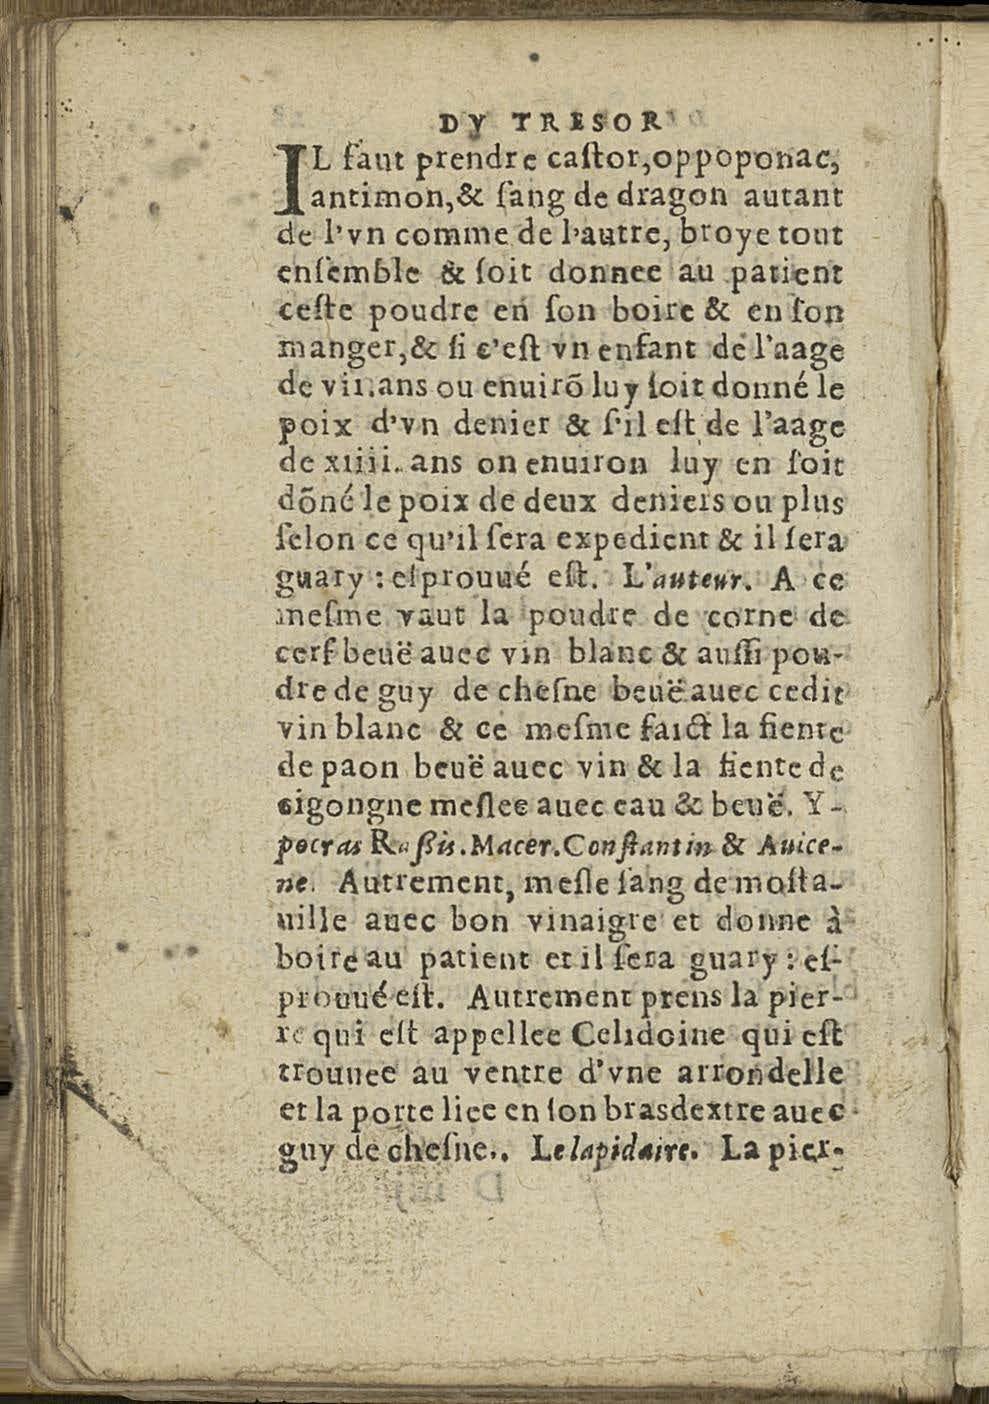 DV TRESOR
IL faut prendre caſtor, oppoponac,
antimon, & ſang de dragon autant
de l'vn comme de l'autre, broye tout
enſemble & ſoit donnee au patient
ceſte poudre en ſon boire & en ſon
manger, & ſi c'eſt vn enfant de l'aage
de vii. ans ou enuirõ luy ſoit donné le
poix d'vn denier & ſ'il eſt de l'aage
de xiiii. ans on enuiron luy en ſoit
dõné le poix de deux deniers ou plus
ſelon ce qu'il ſera expedient & il ſera
guary : eſprouué eſt. L'auteur. A ce
meſme vaut la poudre de corne de
cerf beuë auec vin blanc & auſſi pou-
dre de guy de cheſne beuë auec cedit
vin blanc & ce meſme faict la fiente
de paon beuë auec vin & la fiente de
cigongne meſlee auec eau & beuë. Y-
pocras Raſis. Macer. Conſtantin & Auice-
ne. Autrement, meſle ſang de moſta-
uille auec bon vinaigre et donne à
boire au patient et il ſera guary : eſ-
prouué eſt. Autrement prens la pier-
re qui eſt appellee Celidoine qui eſt
trouuee au ventre d'vne arrondelle
et la porte liee en ſon bras dextre auec
guy de cheſne.. Le lapidaire. La pier-